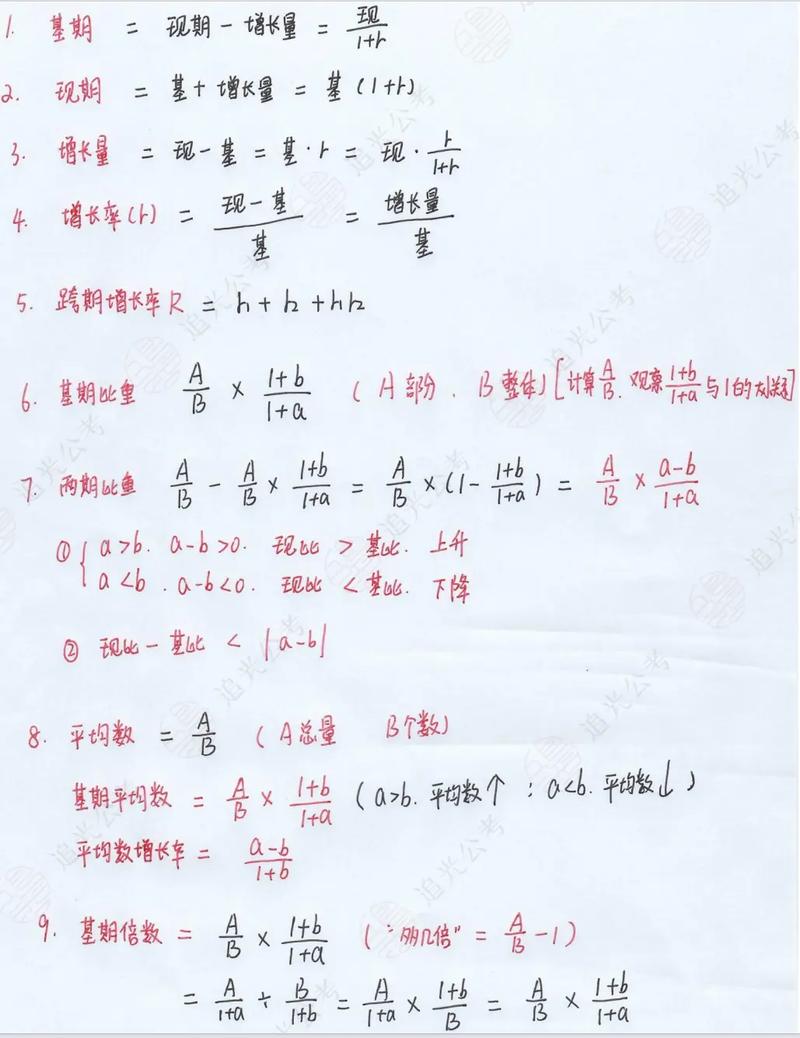 1. 基期 = 现期 - 增长量 = 现/(1+r)
2. 现期 = 基 + 增长量 = 基 (1+r)
3. 增长量 = 现 - 基 = 基·r = 现·r/(1+r)
4. 增长率(r) = (现-基)/基 = 增长量/基
5. 跨期增长率R = r₁ + r₂ + r₁r₂
6. 基期比重 A/B × (1+b)/(1+a) (A部分. B整体) [计算A/B. 观察(1+b)/(1+a)与1的大小关系]
7. 两期比重 A/B - A/B × (1+b)/(1+a) = A/B × (1 - (1+b)/(1+a)) = A/B × (a-b)/(1+a)
① { a>b. a-b>0. 现比 > 基比. 上升
a<b. a-b<0. 现比 < 基比. 下降
② 现比 - 基比 < |a-b|
8. 平均数 = A/B (A总量 B个数)
基期平均数 = A/B × (1+b)/(1+a) (a>b. 平均数↑ ; a<b. 平均数↓)
平均数增长率 = (a-b)/(1+b)
9. 基期倍数 = A/B × (1+b)/(1+a) ("多几倍" = A/B - 1)
= A/(1+a) ÷ B/(1+b) = A/(1+a) × (1+b)/B = A/B × (1+b)/(1+a)
追光公考